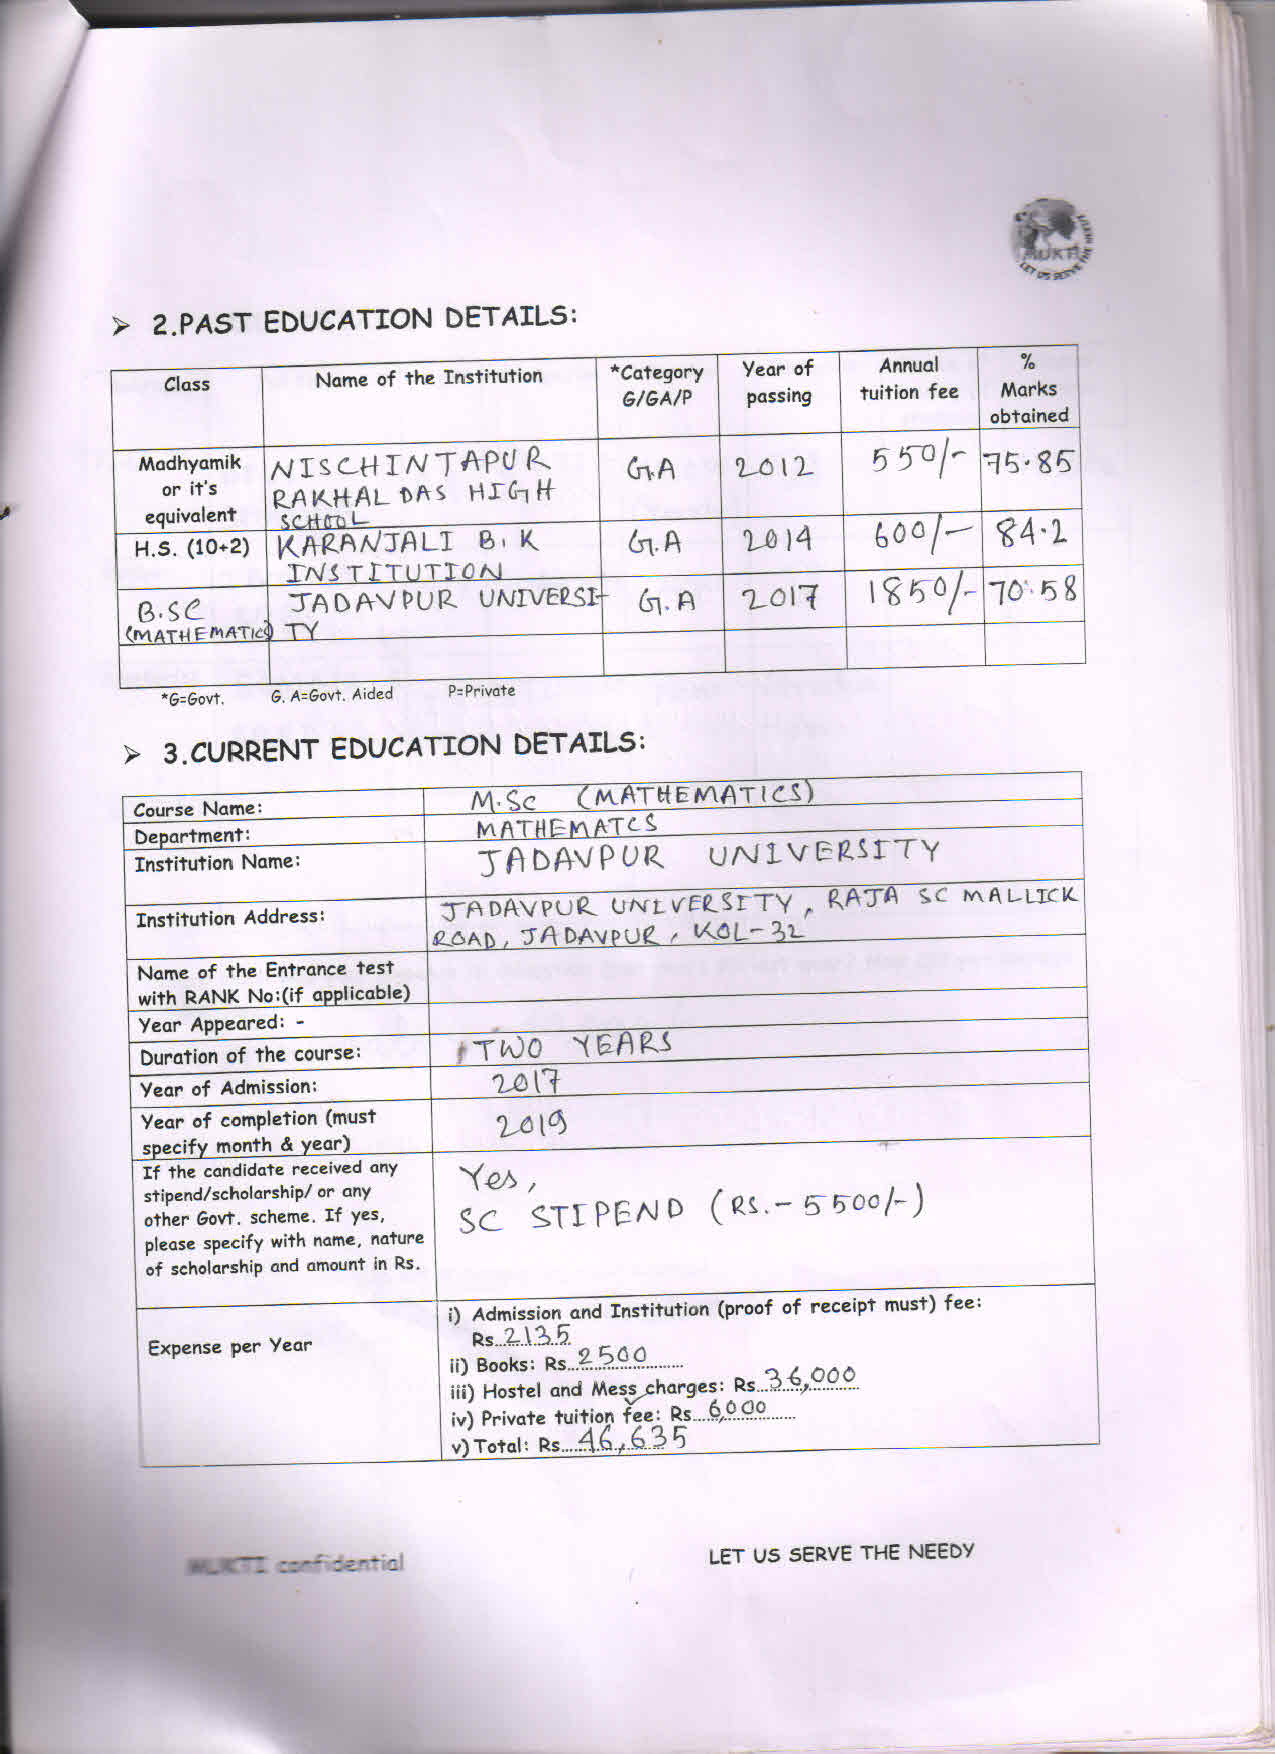 MUKTI
LET US SERVE THE NEEDY
➢ 2.PAST EDUCATION DETAILS:
Class Name of the Institution *Category G/GA/P Year of passing Annual tuition fee % Marks obtained
Madhyamik or it's equivalent NISCHINTAPUR RAKHAL DAS HIGH SCHOOL G.A 2012 550/- 75.85
H.S. (10+2) KARANJALI B.K INSTITUTION G.A 2014 600/- 84.2
B.SC (MATHEMATICS) JADAVPUR UNIVERSITY G.A 2017 1850/- 70.58
*G=Govt. G. A=Govt. Aided P=Private
➢ 3.CURRENT EDUCATION DETAILS:
Course Name: M.Sc (MATHEMATICS)
Department: MATHEMATCS
Institution Name: JADAVPUR UNIVERSITY
Institution Address: JADAVPUR UNIVERSITY, RAJA SC MALLICK
ROAD, JADAVPUR, KOL-32
Name of the Entrance test
with RANK No:(if applicable)
Year Appeared: -
Duration of the course: TWO YEARS
Year of Admission: 2017
Year of completion (must
specify month & year) 2019
If the candidate received any
stipend/scholarship/ or any
other Govt. scheme. If yes,
please specify with name, nature
of scholarship and amount in Rs.
Yes,
SC STIPEND (RS.- 5500/-)
Expense per Year
i) Admission and Institution (proof of receipt must) fee:
Rs...2135
ii) Books: Rs...2500
iii) Hostel and Mess charges: Rs...36,000
iv) Private tuition fee: Rs...6000
v) Total: Rs...46,635
MUKTI confidential
LET US SERVE THE NEEDY